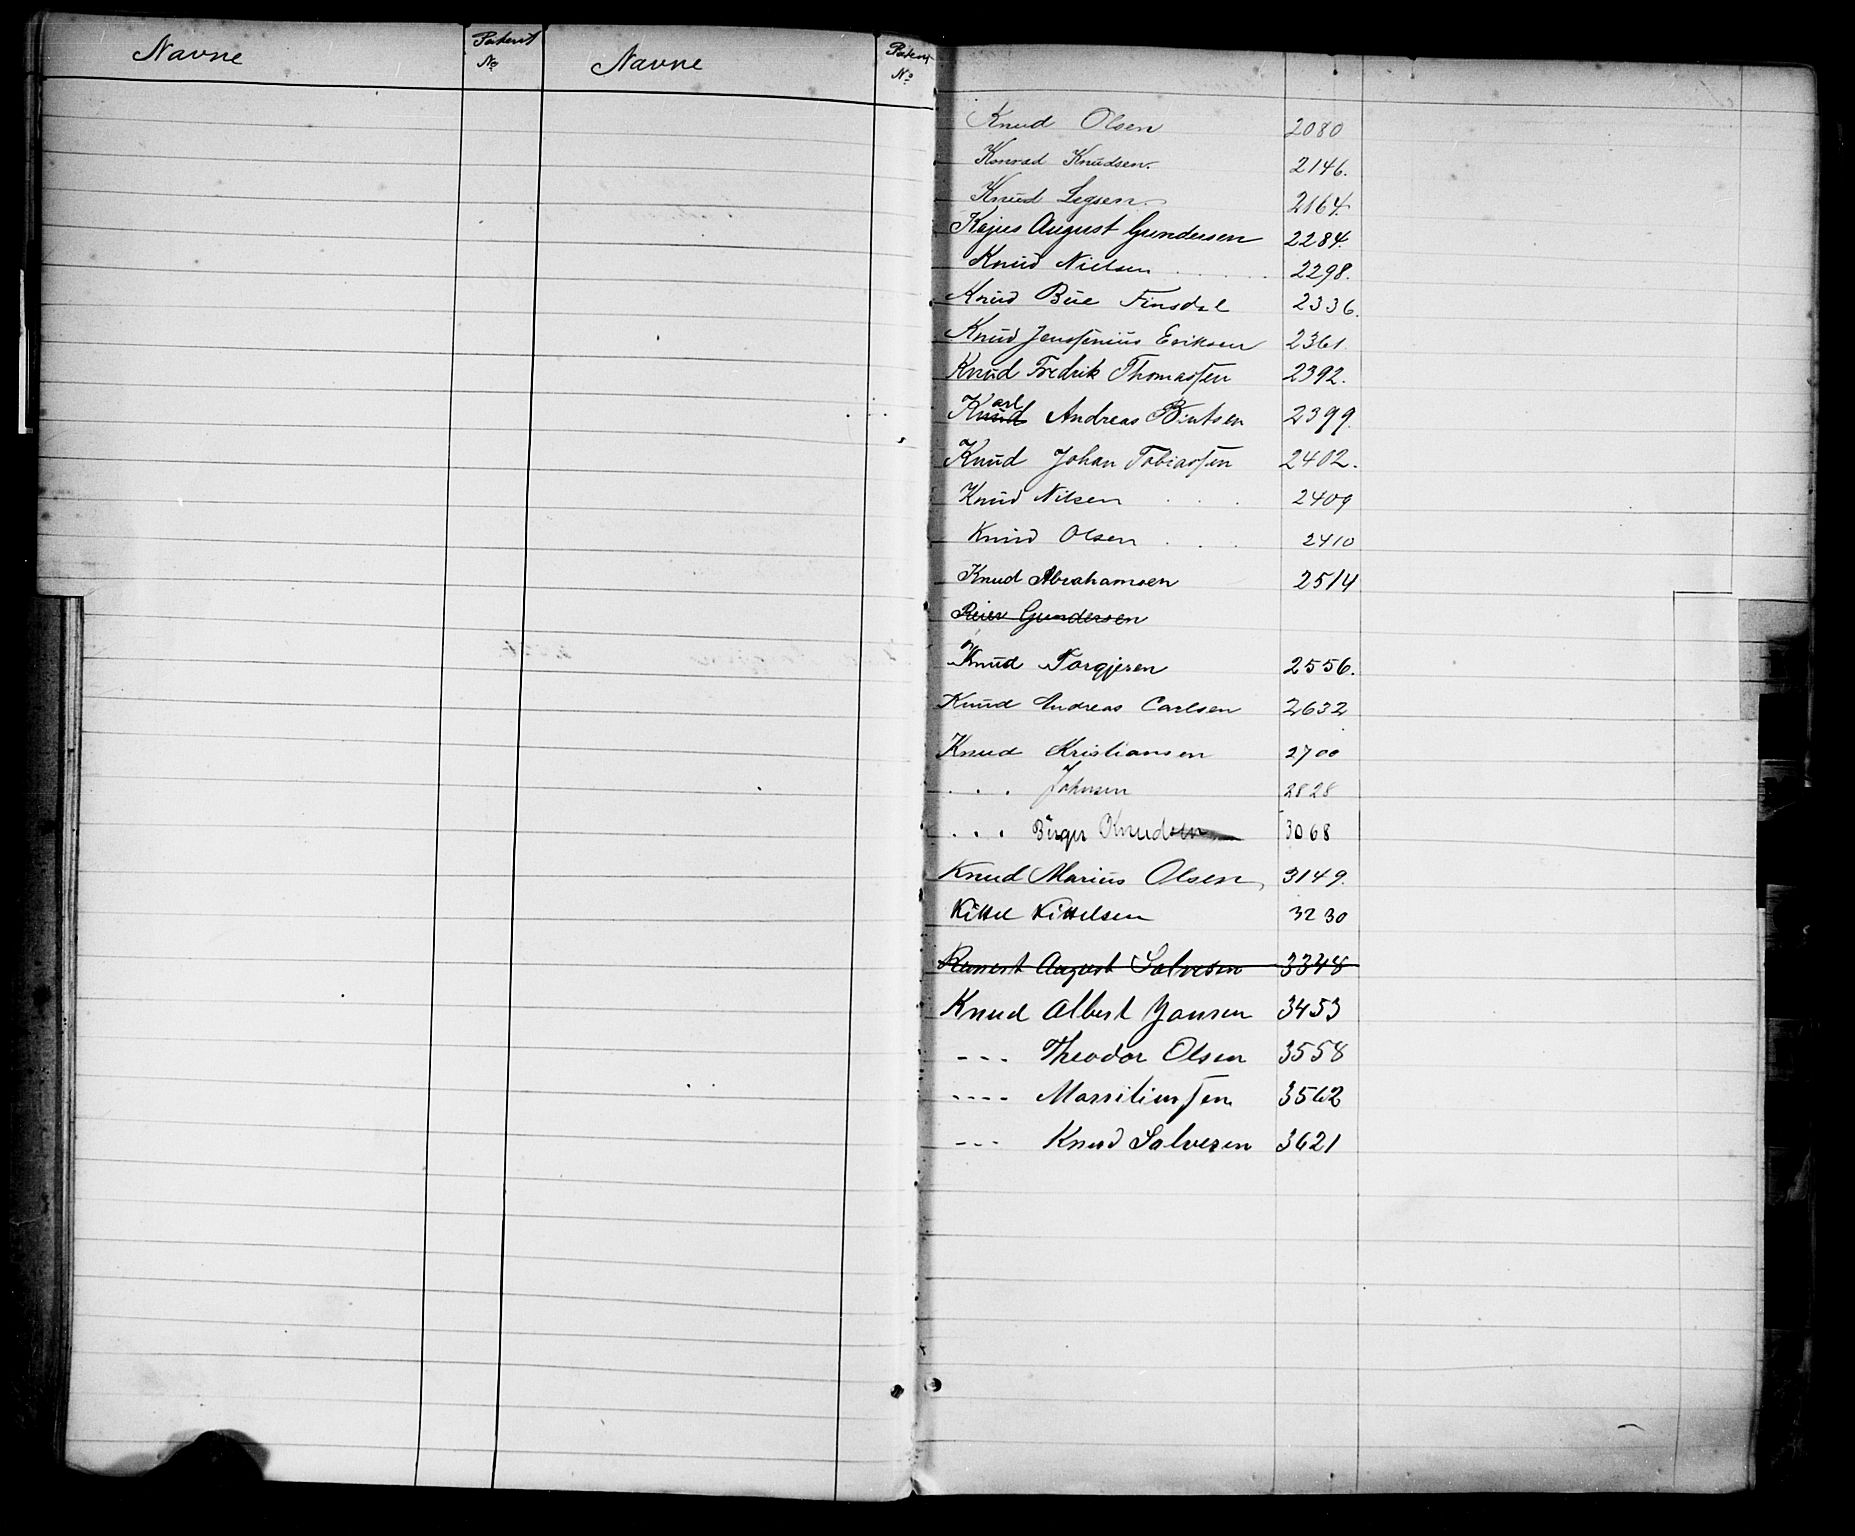 Navne Patent No Navne Patent No
Knud Olsen 2080
Konrad Knudsen. 2146.
Knud Legsen. 2164.
Kajus August Gundersen 2284.
Knud Nielsen . . . . . 2298.
Knud Bue Finsdal 2336.
Knud Jenssenius Eriksen 2361.
Knud Fredrik Thomassen 2392.
Karl Knud Andreas Bentsen 2399.
Knud Johan Tobiassen 2402.
Knud Nilsen . . . 2409
Knud Olsen . . . 2410
Knud Abrahamsen 2514
Reier Gundersen
Knud Torgjersen 2556.
Knud Andreas Carlsen 2632
Knud Kristiansen 2700
. . . Johnsen 2828
. . . Birger Knudsen 3068
Knud Marius Olsen, 3149.
Kittel Kittelsen 3230
August Salvesen 3348
Knud Albert Jansen 3453
--- Theodor Olsen 3558
---- 3562
--- Knud Salvesen 3621